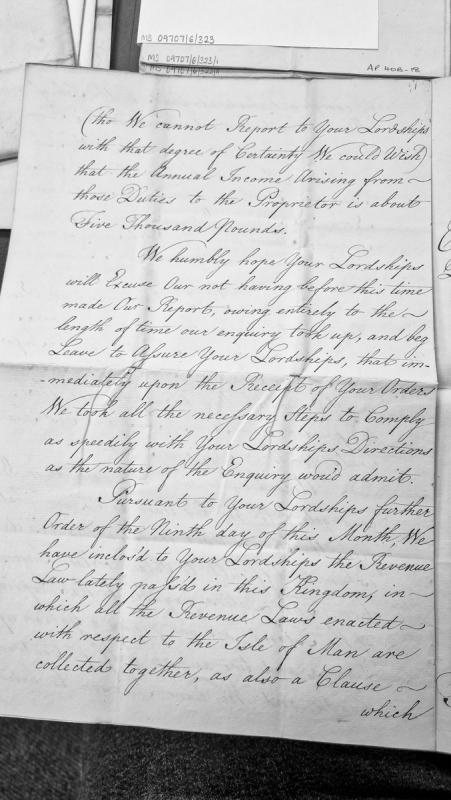 MS 09707/6/323
MS 09707/6/323/1
MS 09707/6/323/1
AP 40B-18
(tho We cannot Report to Your Lordships
with that degree of Certainty We could Wish)
that the Annual Income Arising from
those Duties to the Proprietor is about
Five Thousand Pounds.
We humbly hope Your Lordships
will Excuse Our not having before this time
made Our Report, owing entirely to the
length of time our enquiry took up, and beg
Leave to Assure Your Lordships, that im-
-mediately upon the Receipt of Your Orders
We took all the necessary Steps to Comply
as speedily with Your Lordships Directions
as the nature of the Enquiry would admit.
Pursuant to Your Lordships further
Order of the Ninth day of this Month, We
have inclos'd to Your Lordships the Revenue
Law lately pass'd in this Kingdom, in
which all the Revenue Laws enacted
with respect to the Isle of Man are
collected together, as also a Clause
which